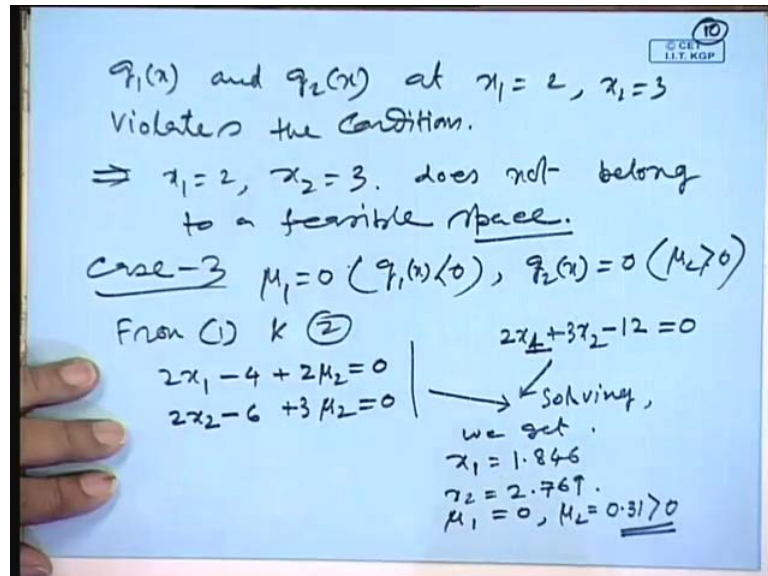 10
© CET
I.I.T. KGP
g₁(x) and g₂(x) at x₁ = 2, x₂ = 3
violates the condition.
⇒ x₁ = 2, x₂ = 3. does not belong
to a feasible space.
Case-3 μ₁ = 0 (g₁(x) < 0), g₂(x) = 0 (μ₂ > 0)
From (1) & (2)
2x₁ + 3x₂ - 12 = 0
2x₁ - 4 + 2μ₂ = 0
2x₂ - 6 + 3μ₂ = 0
Solving,
we get.
x₁ = 1.846
x₂ = 2.769.
μ₁ = 0, μ₂ = 0.31 > 0